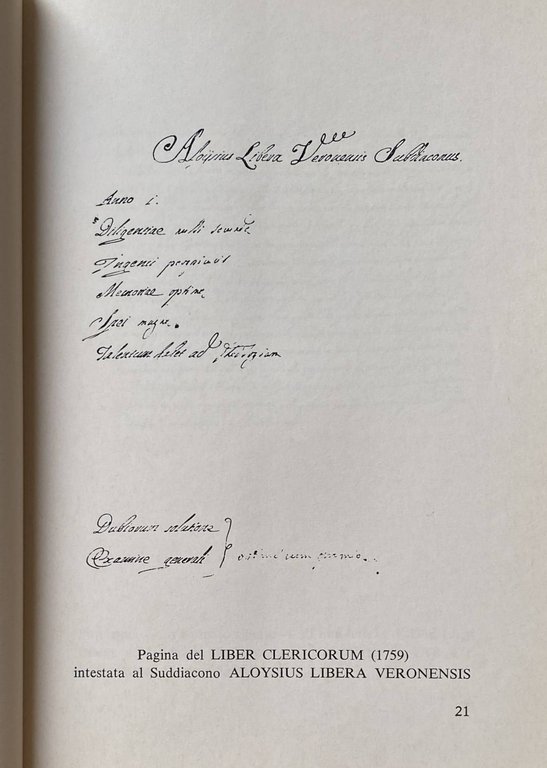 Aloysius Libera Veronensis Subdiaconus.
Anno i.
Diligentiae nulli secundae
Ingenii perspicacis
Memoriae optimae
Spei magnae.
Talentum habet ad
Dubiorum solutione
Examine generali
Pagina del LIBER CLERICORUM (1759)
intestata al Suddiacono ALOYSIUS LIBERA VERONENSIS
21